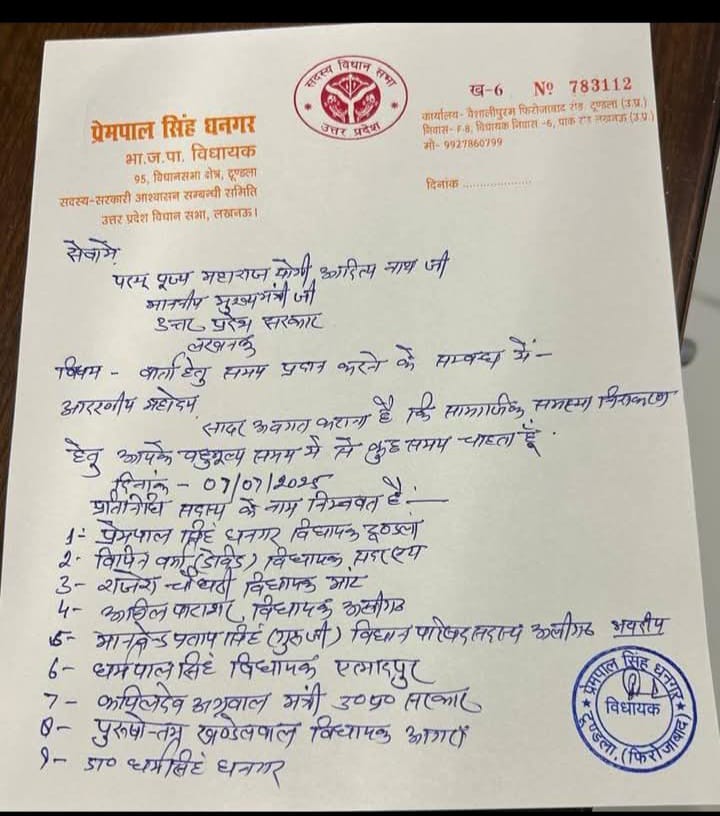 सदस्य विधान सभा
उत्तर प्रदेश
ख-6 Nº 783112
प्रेमपाल सिंह धनगर
भा.ज.पा. विधायक
95, विधानसभा क्षेत्र, टूण्डला
सदस्य-सरकारी आश्वासन सम्बन्धी समिति
उत्तर प्रदेश विधान सभा, लखनऊ।
कार्यालय- वैशालीपुरम फिरोजाबाद रोड, टूण्डला (उ.प्र.)
निवास- F-8, विधायक निवास -6, पार्क रोड लखनऊ (उ.प्र.)
मो- 9927860799
दिनांक ..................
सेवामें
परम् पूज्य महाराज योगी आदित्य नाथ जी
माननीय मुख्यमंत्री जी
उत्तर प्रदेश सरकार
लखनऊ
विषय - वार्ता हेतु समय प्रदान करने के सम्बन्ध में-
आदरणीय महोदय,
सादर अवगत कराना है कि सामाजिक समस्या निराकरण
हेतु आपके बहुमूल्य समय में से कुछ समय चाहता हूँ.
दिनांक - 07/07/2025
प्रतिनिधि सदस्य के नाम निम्नवत है:-
1- प्रेमपाल सिंह धनगर विधायक टूण्डला
2- विपिन वर्मा (डेविड) विधायक,
3- राजेश चौधरी विधायक मांट
4- विधायक अलीगढ
5- मानवेन्द्र प्रताप सिंह (गुरूजी) विधान परिषद सदस्य अलीगढ भवदीय
6- धर्मपाल सिंह विधायक एत्मादपुर
7- कपिलदेव अग्रवाल मंत्री उ०प्र० सरकार
8- पुरूषोत्तम खण्डेलवाल विधायक आगरा
9- डा० धर्मसिंह धनगर
प्रेमपाल सिंह धनगर
विधायक
टूण्डला, (फिरोजाबाद)